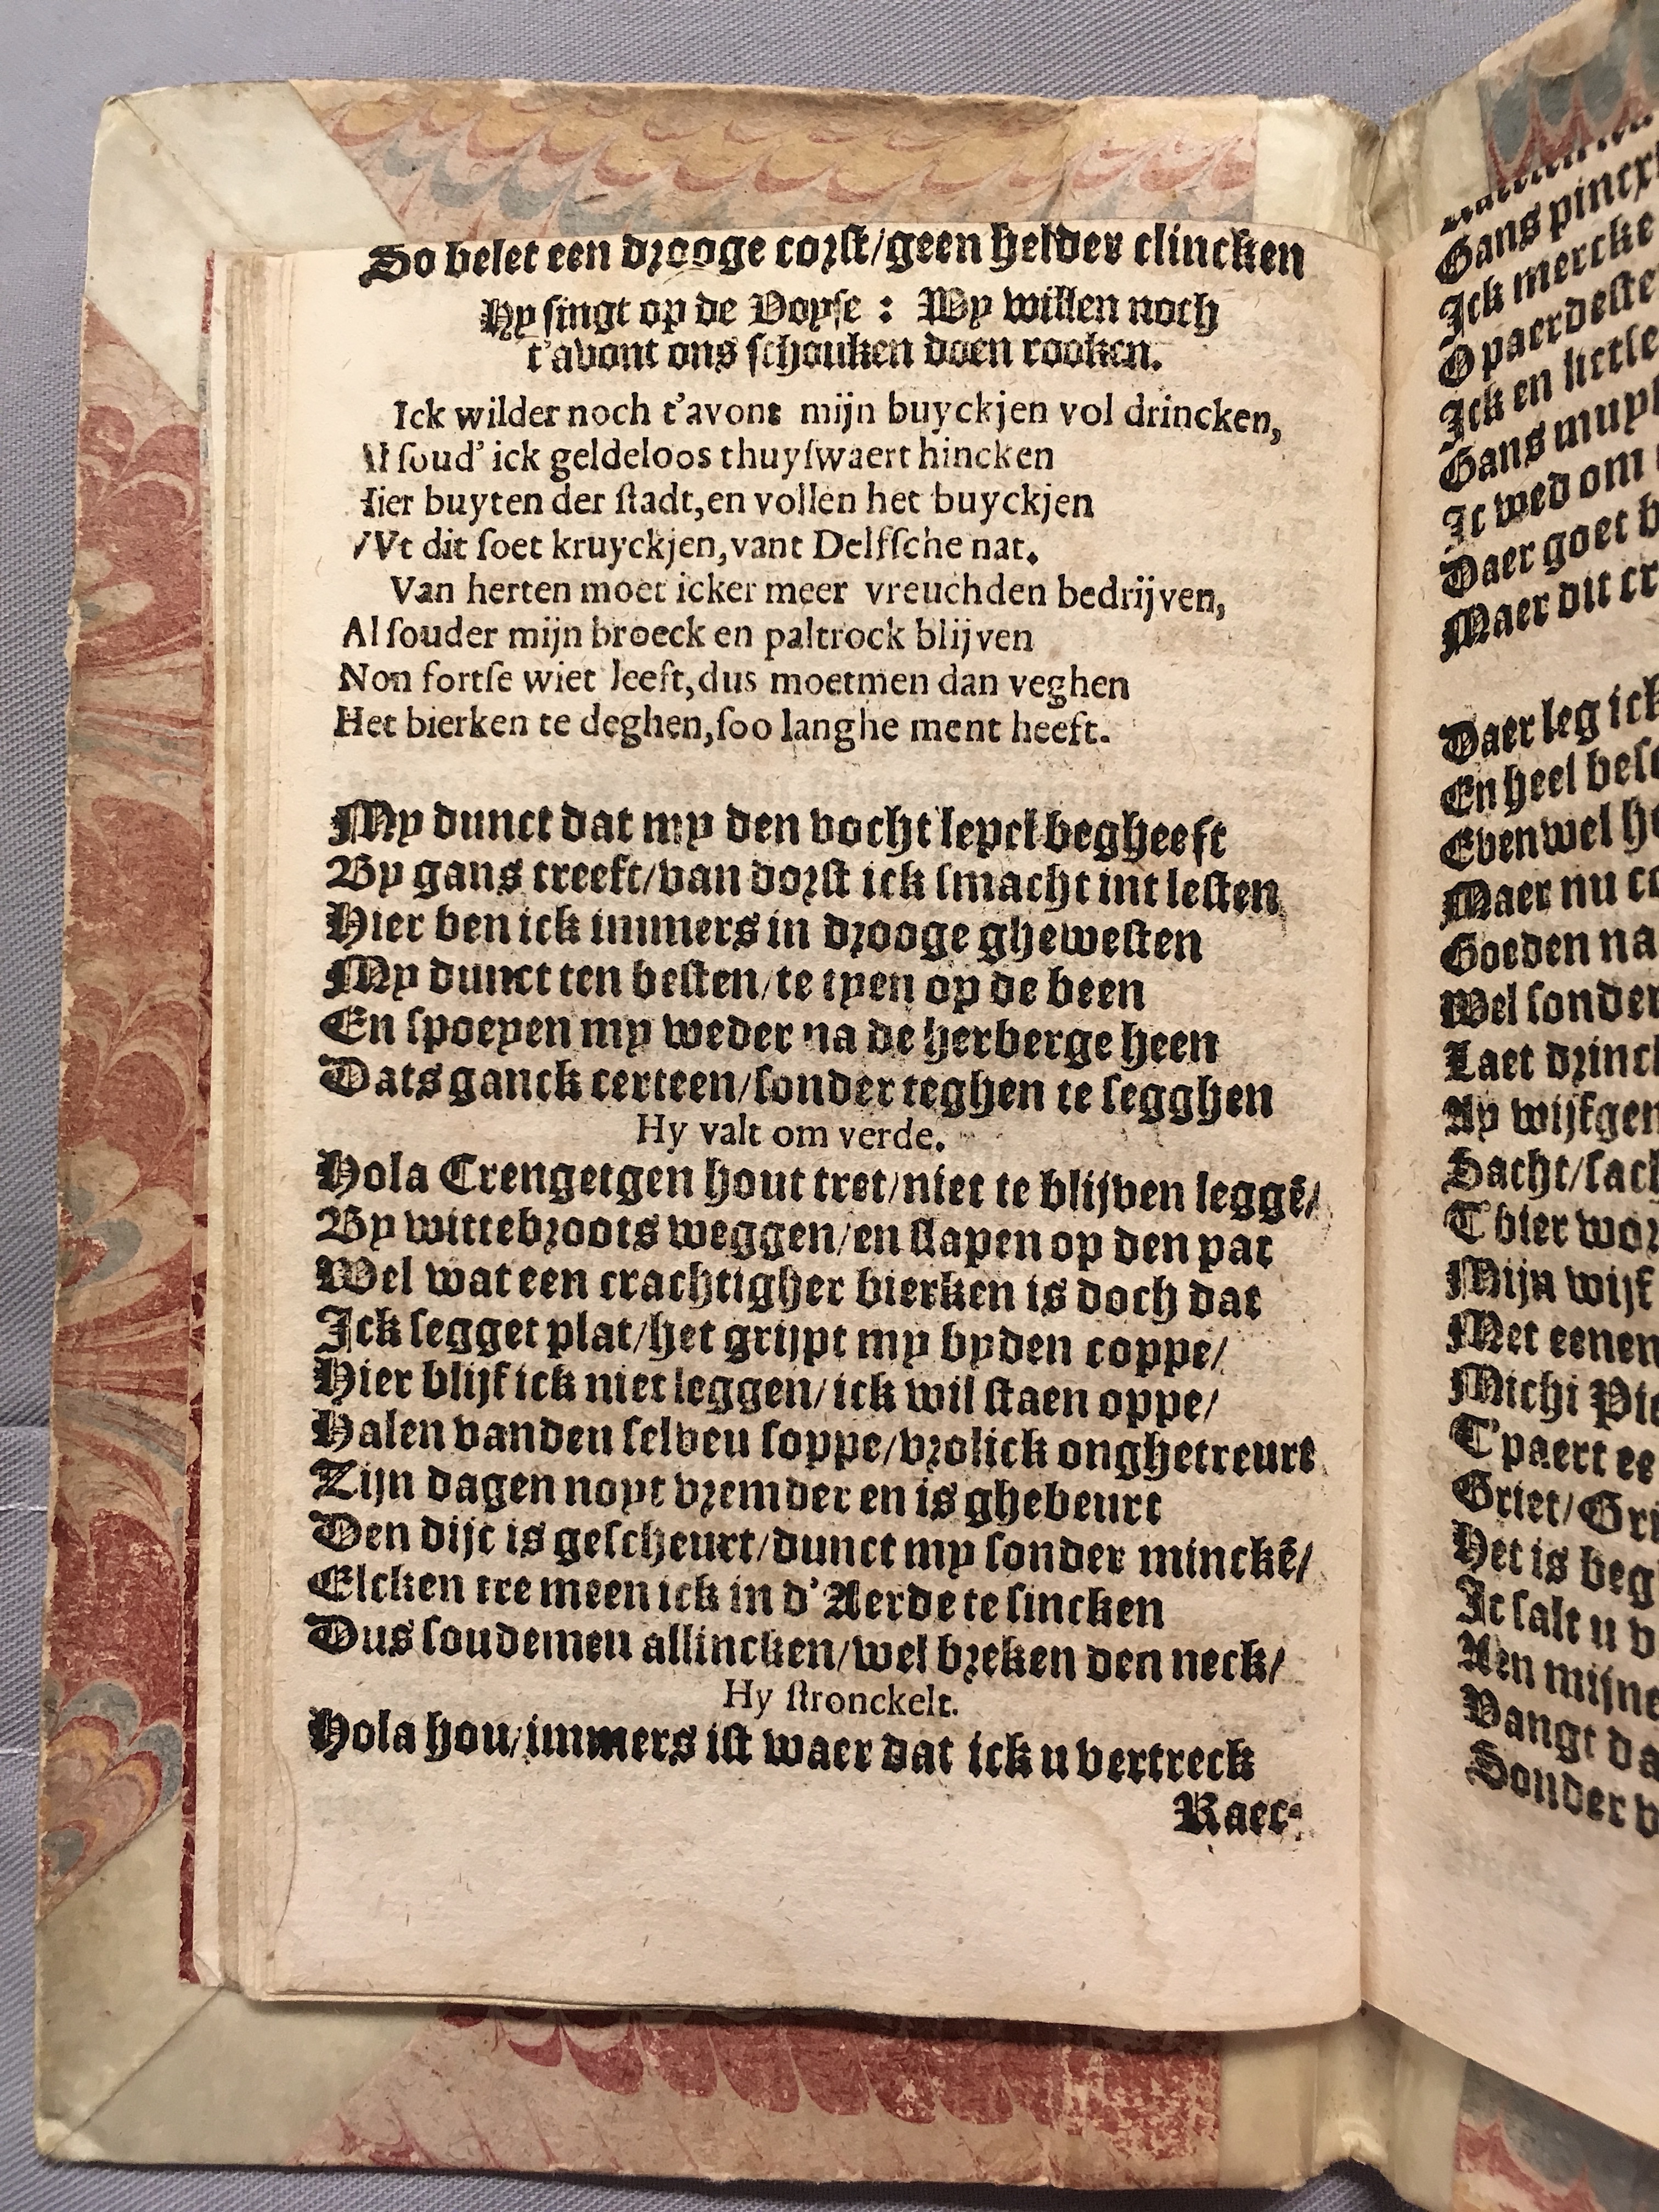 So belet een drooge corst/geen helder clincken
Hy singt op de Voyse : Wy willen noch
t'avont ons schouken doen rooken.
Ick wilder noch t'avont mijn buyckjen vol drincken,
Al ſoud' ick geldeloos thuyſwaert hincken
Hier buyten der ſtadt,en vollen het buyckjen
VVt dit ſoet kruyckjen,vant Delfſche nat.
Van herten moet icker meer vreuchden bedrijven,
Al ſouder mijn broeck en paltrock blijven
Non fortſe wiet leeft,dus moetmen dan veghen
Het bierken te deghen,ſoo langhe ment heeft.
My dunct dat my den vocht leyct begheeft
By gans treeft/van dorſt ick ſmacht int leſten
Hier ben ick immers in drooge gheweſten
My dunct ten beſten/te tyen op de been
En ſpoeyen my weder na de herberge heen
Dats ganck certeen/ſonder teghen te ſegghen
Hy valt om verde.
Hola Crengetgen hout tret/niet te blijven leggē/
By wittebroots weggen/en ſlapen op den pat
Wel wat een crachtigher bierken is doch dat
Ick ſegget plat/het grijpt my byden coppe/
Hier blijf ick niet leggen/ick wil ſtaen oppe/
Halen vanden ſelven ſoppe/vrolick onghetreurt
Zijn dagen noyt vremder en is ghebeurt
Den dijc is geſcheurt/dunct my ſonder minckē/
Elcken tre meen ick in d'Aerde te ſincken
Dus ſoudemen allincken/wel breken den neck/
Hy ſtronckelt.
Hola hou/immers iſt waer dat ick u vertreck
Raec-
Gans
Ick mercke
O paerdeſte
Ick en
Gans
It wed om
Daer goet
Maer dit
Daer leg ick
En heel
Evenwel
Maer nu
Goeden na
Wel ſonder
Laet
Ay
Sacht/
T'bier
Mijn wijf
Met eenen
Michi
T'paert
Griet/
Het is
It ſalt u
Aen
Vangt
Sonder